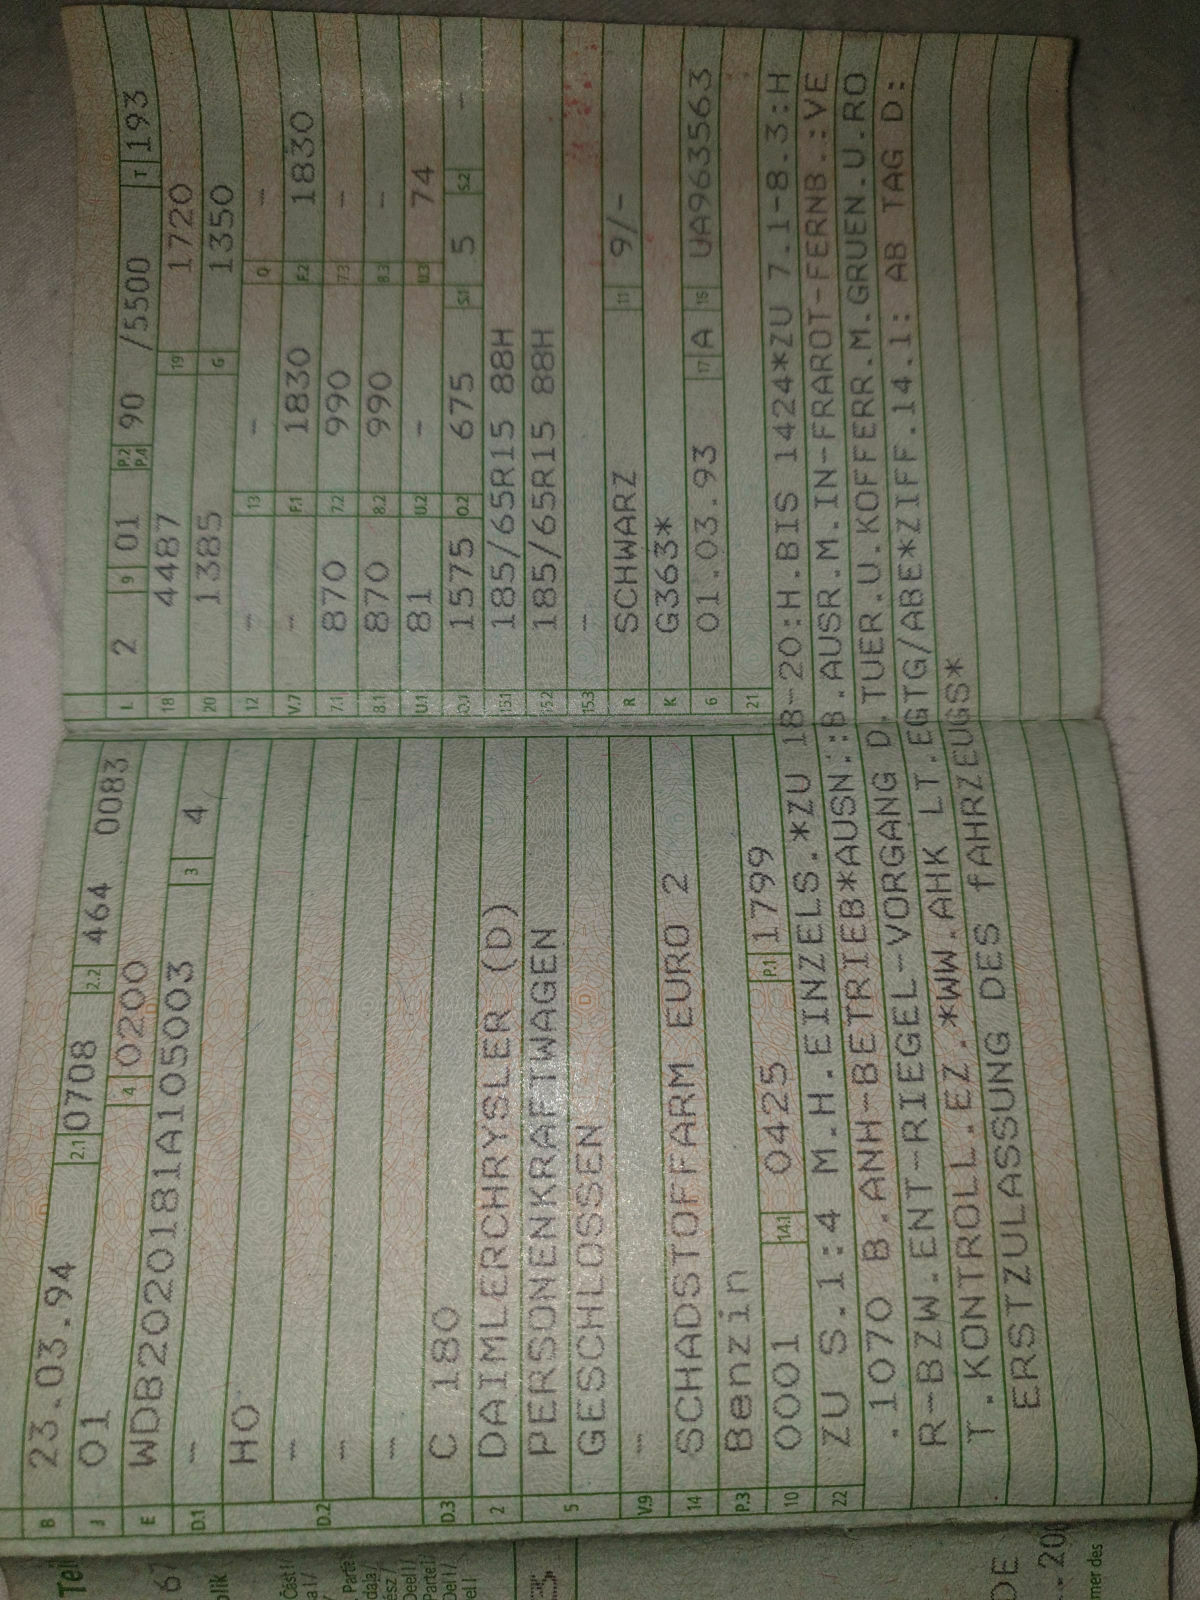 B 23.03.94 2.1 0708 2.2 464 0083
J 01 4 0200
E WDB2020181A105003 3 4
D.1 -
D.2 HO
-
-
-
D.3 C 180
2 DAIMLERCHRYSLER (D)
5 PERSONENKRAFTWAGEN
GESCHLOSSEN
V.9 -
14 SCHADSTOFFARM EURO 2
P.3 Benzin P.1 1799
10 0001 14.1 0425
L 2 9 01 P.2 P.4 90 /5500 T 193
18 4487 19 1720
20 1385 G 1350
12 - 13 - Q -
V.7 - F.1 1830 F.2 1830
7.1 870 7.2 990 7.3 -
8.1 870 8.2 990 8.3 -
U.1 81 U.2 - U.3 74
O.1 1575 O.2 675 S.1 5 S.2 -
15.1 185/65R15 88H
15.2 185/65R15 88H
15.3 -
R SCHWARZ 11 9/-
K G363*
6 01.03.93 17 A 16 UA963563
21
22 ZU S.1:4 M.H.EINZELS.*ZU 18-20:H.BIS 1424*ZU 7.1-8.3:H
.1070 B.ANH-BETRIEB*AUSN.:B.AUSR.M.IN-FRAROT-FERNB.:VE
R-BZW.ENT-RIEGEL-VORGANG D.TUER.U.KOFFERR.M.GRUEN.U.RO
T.KONTROLL.EZ.*WW.AHK LT.EGTG/ABE*ZIFF.14.1: AB TAG D:
ERSTZULASSUNG DES fAHRZEUGS*
Teil
Část I
Parte I
Deel I
Del I
DE
mer des